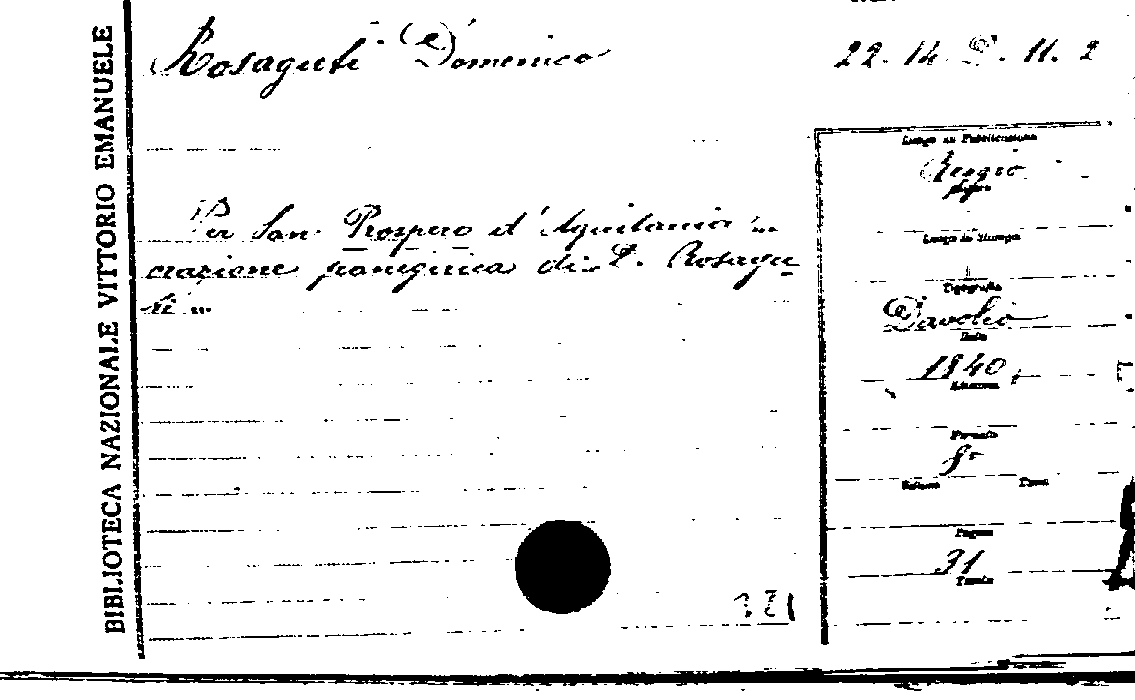 BIBLIOTECA NAZIONALE VITTORIO EMANUELE
Rosaguti Domenico
22. 14. D. 11. 2
Per San Prospero d'Aquitania ...
orazione panegirica di D. Rosagu-
ti ...
Luogo di Pubblicazione
Reggio
Luogo di Stampa
Tipografia
Davolio
Data
1840
Formato
8º
Volume
Tomi
Pagine
31
Tavole